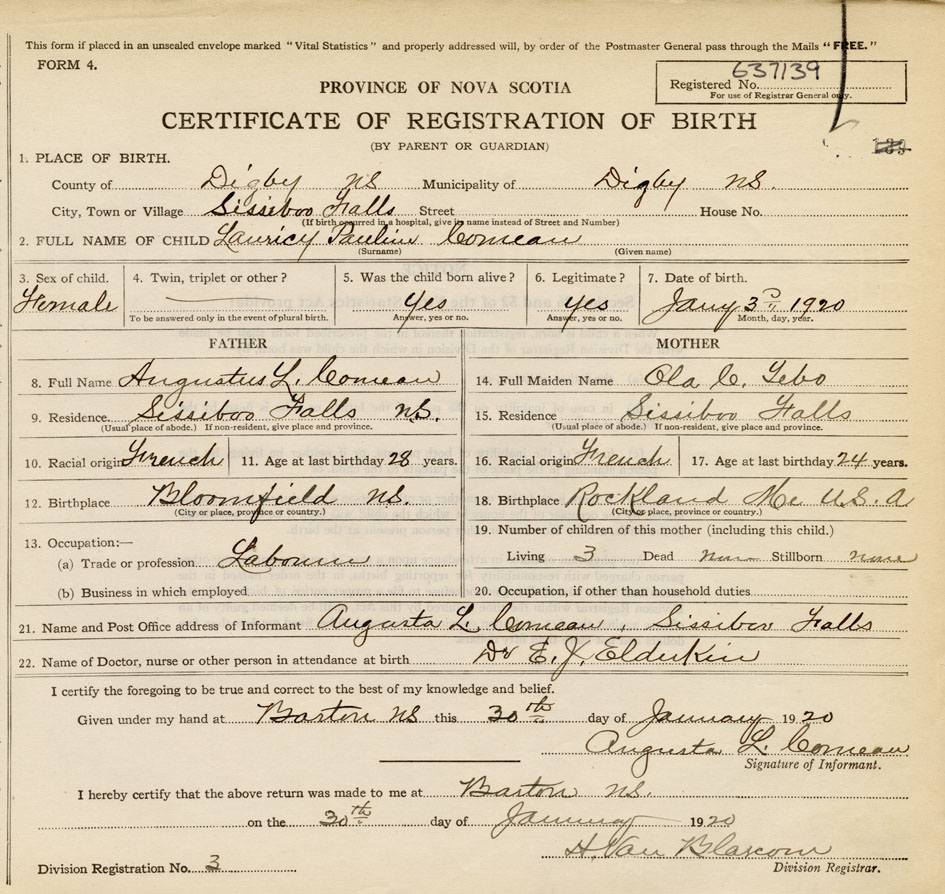 This form if placed in an unsealed envelope marked "Vital Statistics" and properly addressed will, by order of the Postmaster General pass through the Mails "FREE."
FORM 4.
637139
Registered No.
For use of Registrar General only.
PROVINCE OF NOVA SCOTIA
CERTIFICATE OF REGISTRATION OF BIRTH
(BY PARENT OR GUARDIAN)
1. PLACE OF BIRTH.
County of Digby NS Municipality of Digby NS.
City, Town or Village Sissiboo Falls Street House No.
(If birth occurred in a hospital, give its name instead of Street and Number)
2. FULL NAME OF CHILD Lauricy Pauline Comeau
(Surname) (Given name)
3. Sex of child. 4. Twin, triplet or other? 5. Was the child born alive? 6. Legitimate? 7. Date of birth.
Female Yes Yes Jany 3rd 1920
To be answered only in the event of plural birth. Answer, yes or no. Answer, yes or no. Month, day, year.
FATHER MOTHER
8. Full Name Augustus L. Comeau 14. Full Maiden Name Ola C. Gebo
9. Residence. Sissiboo Falls NS. 15. Residence Sissiboo Falls
(Usual place of abode.) If non-resident, give place and province. (Usual place of abode.) If non-resident, give place and province.
10. Racial origin French 11. Age at last birthday 28 years. 16. Racial origin French 17. Age at last birthday 24 years.
12. Birthplace Bloomfield NS 18. Birthplace Rockland Me U.S.A
(City or place, province or country.) (City or place, province or country.)
19. Number of children of this mother (including this child.)
13. Occupation:—
(a) Trade or profession Labourer Living 3 Dead none Stillborn none
(b) Business in which employed 20. Occupation, if other than household duties
21. Name and Post Office address of Informant Augusta L. Comeau, Sissiboo Falls
22. Name of Doctor, nurse or other person in attendance at birth Dr E. J. Elderkin
I certify the foregoing to be true and correct to the best of my knowledge and belief.
Given under my hand at Barton NS this 30th day of January 1920
Augusta L. Comeau
Signature of Informant.
I hereby certify that the above return was made to me at Barton NS.
on the 30th day of January 1920
H. Van Blarcom
Division Registration No. 3 Division Registrar.